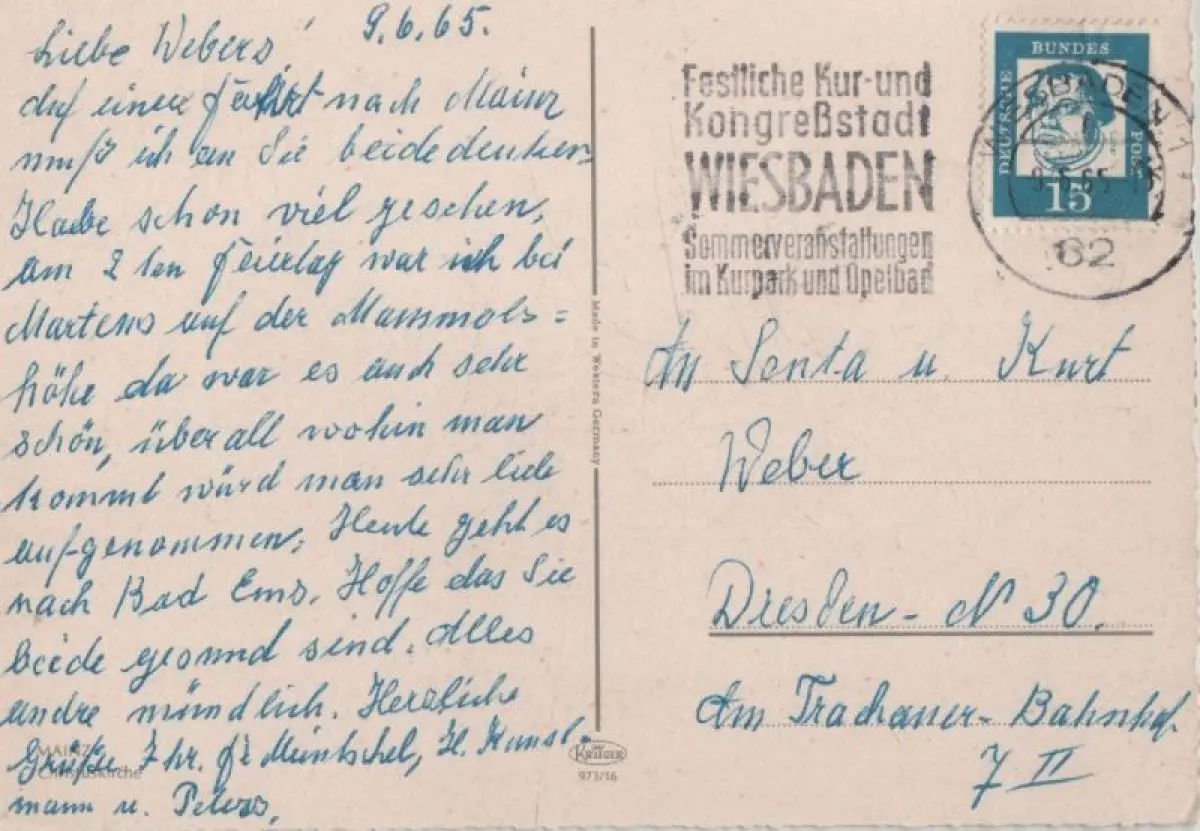 9.6.65.
Liebe Webers!
Auf einer Fahrt nach Mainz
muß ich an Sie beide denken.
Habe schon viel gesehen,
am 2 ten Feiertag war ich bei
Martens auf der Mammols=
höhe da war es auch sehr
schön, überall wohin man
kommt würd man sehr lieb
aufgenommen. Heute geht es
nach Bad Ems. Hoffe das Sie
beide gesund sind. Alles
andre mündlich. Herzliche
Grüße Ihr. Meintschel, H. Kunst-
mann u. Peters.
MAINZ
Christuskirche
Made in Western Germany
KRÜGER
973/16
Festliche Kur- und
Kongreßstadt
WIESBADEN
Sommerveranstaltungen
im Kurpark und Opelbad
DEUTSCHE
BUNDES
POST
15
WIESBADEN 1
62
An Senta u. Kurt
Weber
Dresden - N 30.
Am Trachauer-Bahnhof
7 II